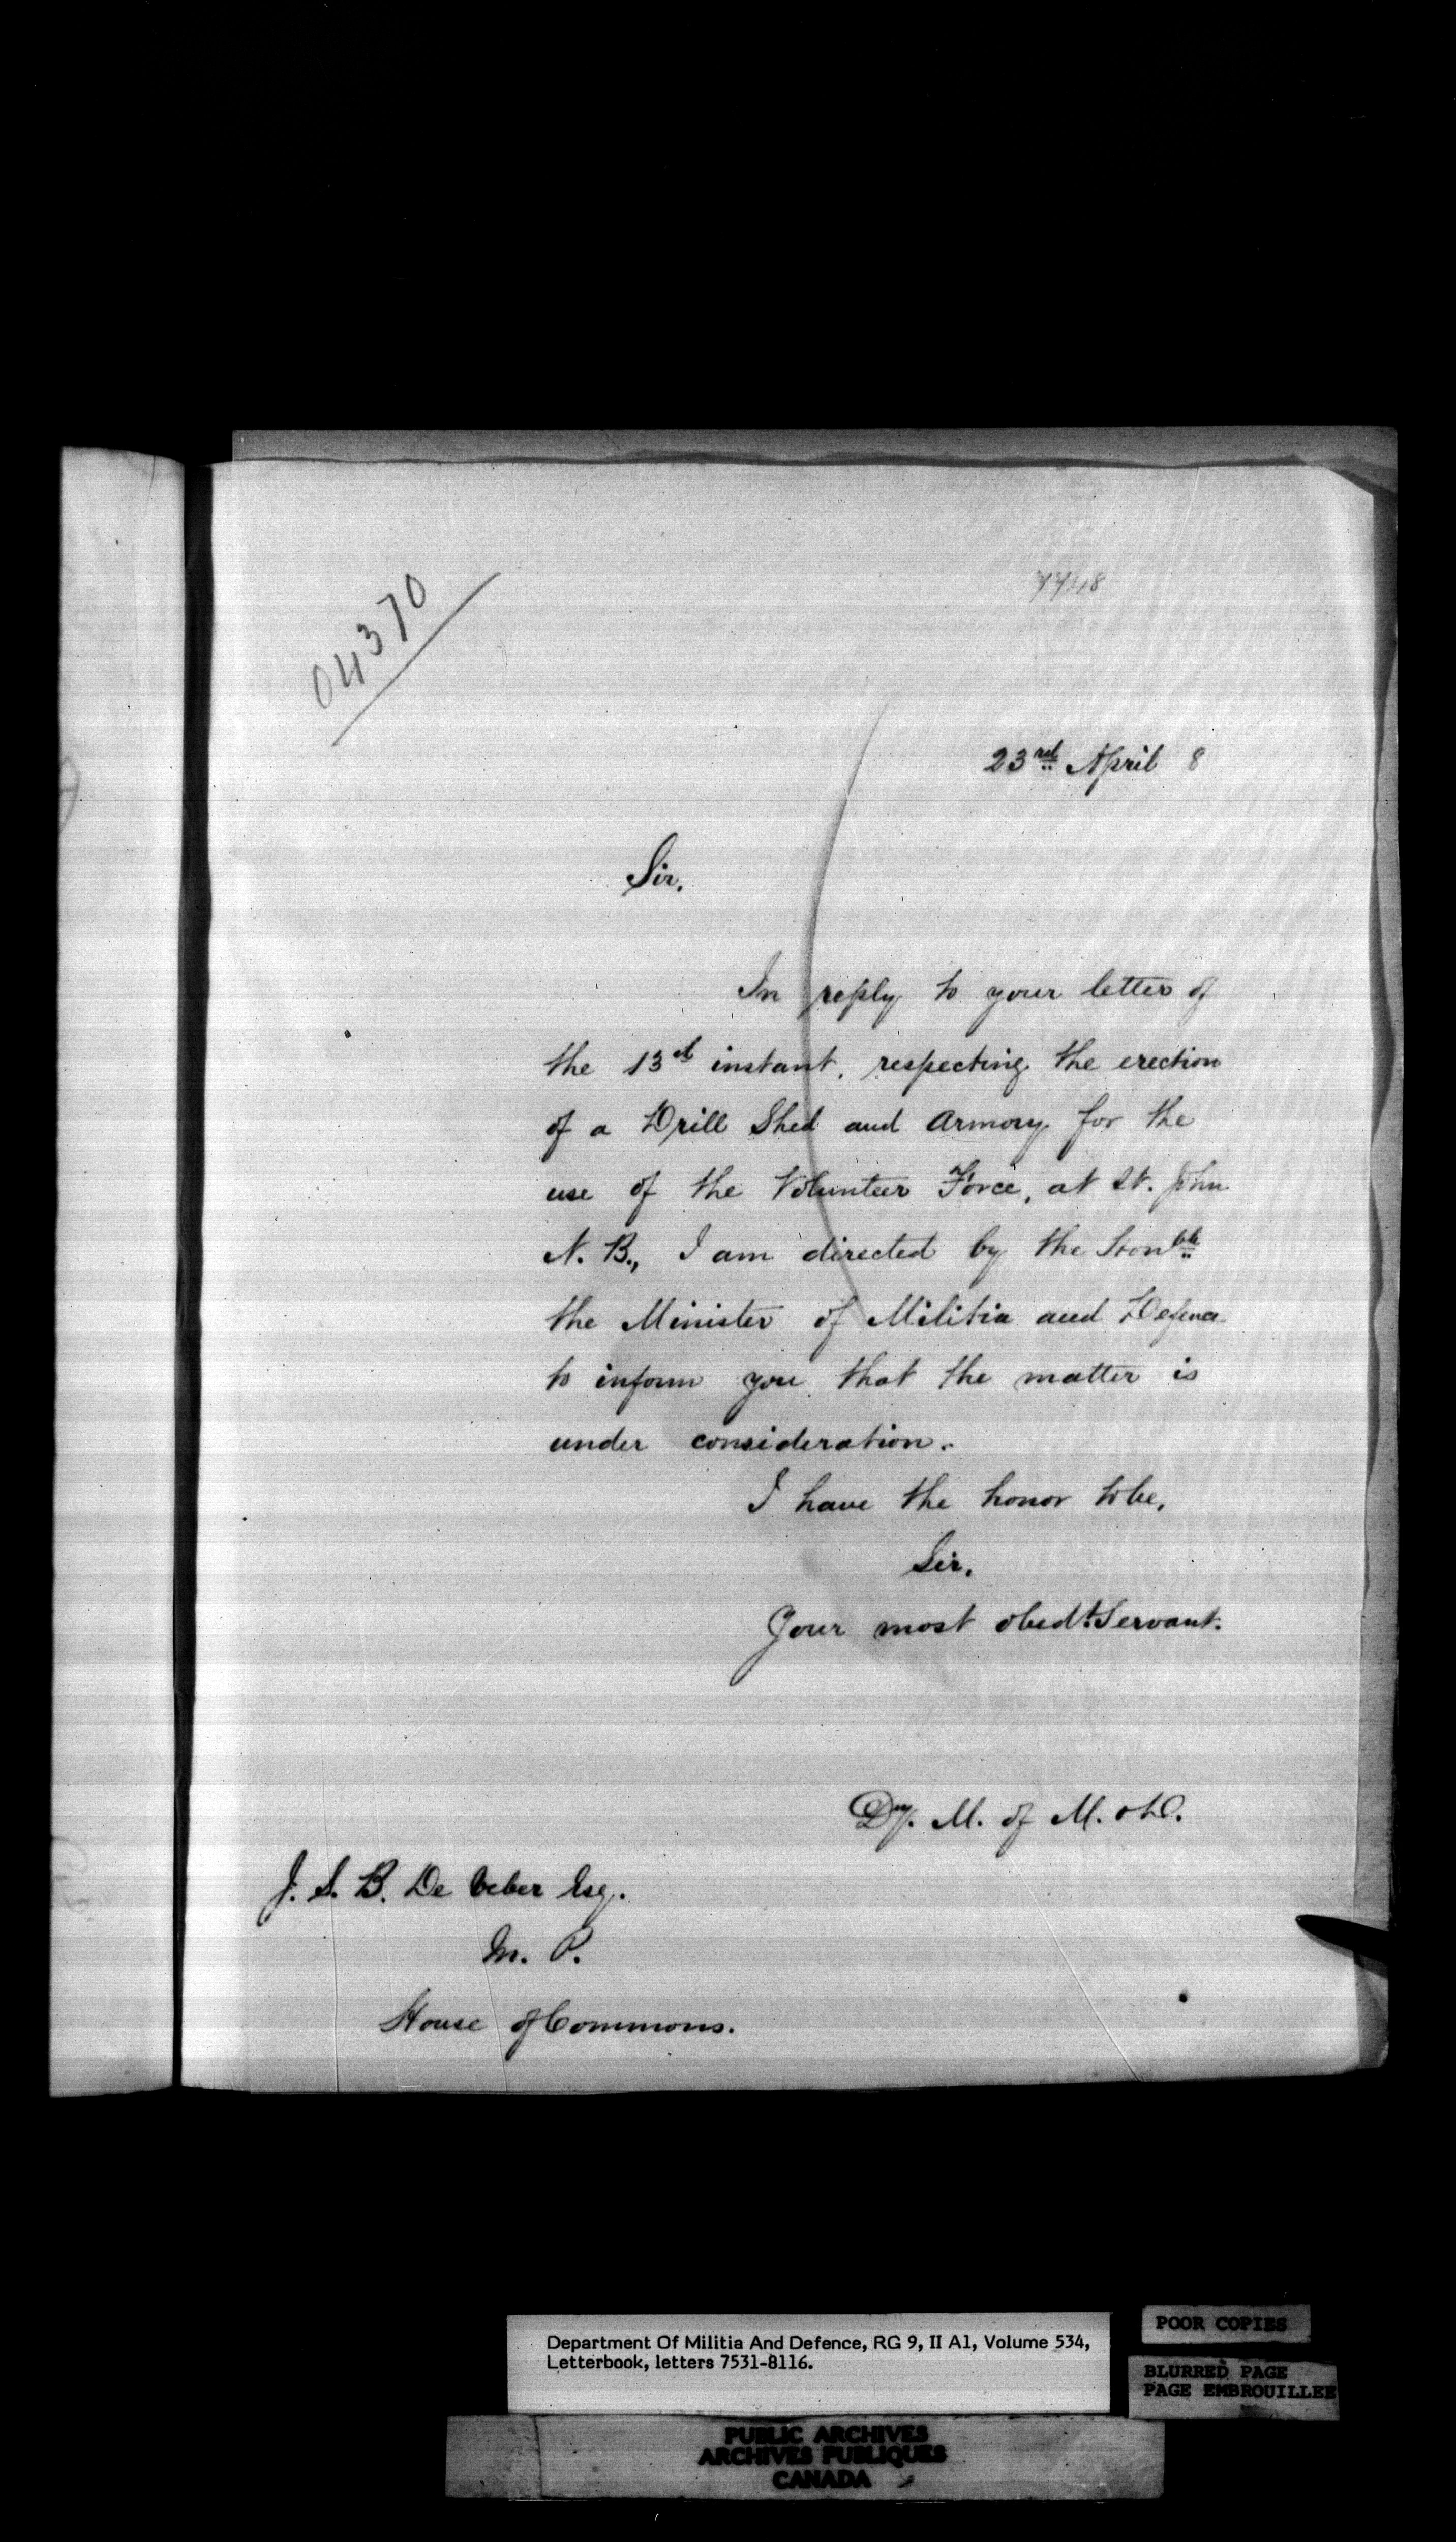 04370
7748
23rd April 8
Sir,
In reply to your letter of
the 13d instant, respecting the erection
of a Drill Shed and Armory for the
use of the Volunteer Force, at St. John
N. B., I am directed by the Honble
the Minister of Militia and Defence
to inform you that the matter is
under consideration.
I have the honor to be,
Sir,
Your most obedt. Servant.
Dy. M. of M. & D.
J. S. B. De Veber Esq.
M. P.
House of Commons.
Department Of Militia And Defence, RG 9, II A1, Volume 534,
Letterbook, letters 7531-8116.
POOR COPIES
BLURRED PAGE
PAGE EMBROUILLEE
PUBLIC ARCHIVES
ARCHIVES PUBLIQUES
CANADA